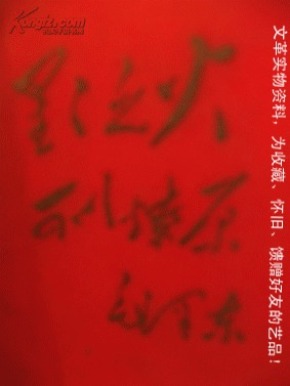 星之火
可以燎原
毛泽东
文革实物资料，为收藏、怀旧、馈赠好友的艺品！